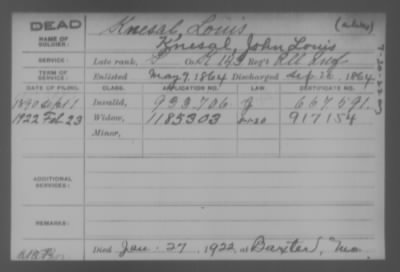 DEAD
Knesal, Louis (alias)
NAME OF SOLDIER: Knesal, John Louis
SERVICE: Late rank, Co. K 143 Reg't Ill Inf
TERM OF SERVICE: Enlisted May 7, 1864 Discharged Sep. 26, 1864
DATE OF FILING. CLASS. APPLICATION NO. LAW. CERTIFICATE NO.
1890 Sept 1 Invalid, 933,706 J 667,591
1922 Feb 23 Widow, 1185303 917154
Minor,
ADDITIONAL SERVICES:
REMARKS:
Died Jan. 27, 1922, at Baxter, Mo.